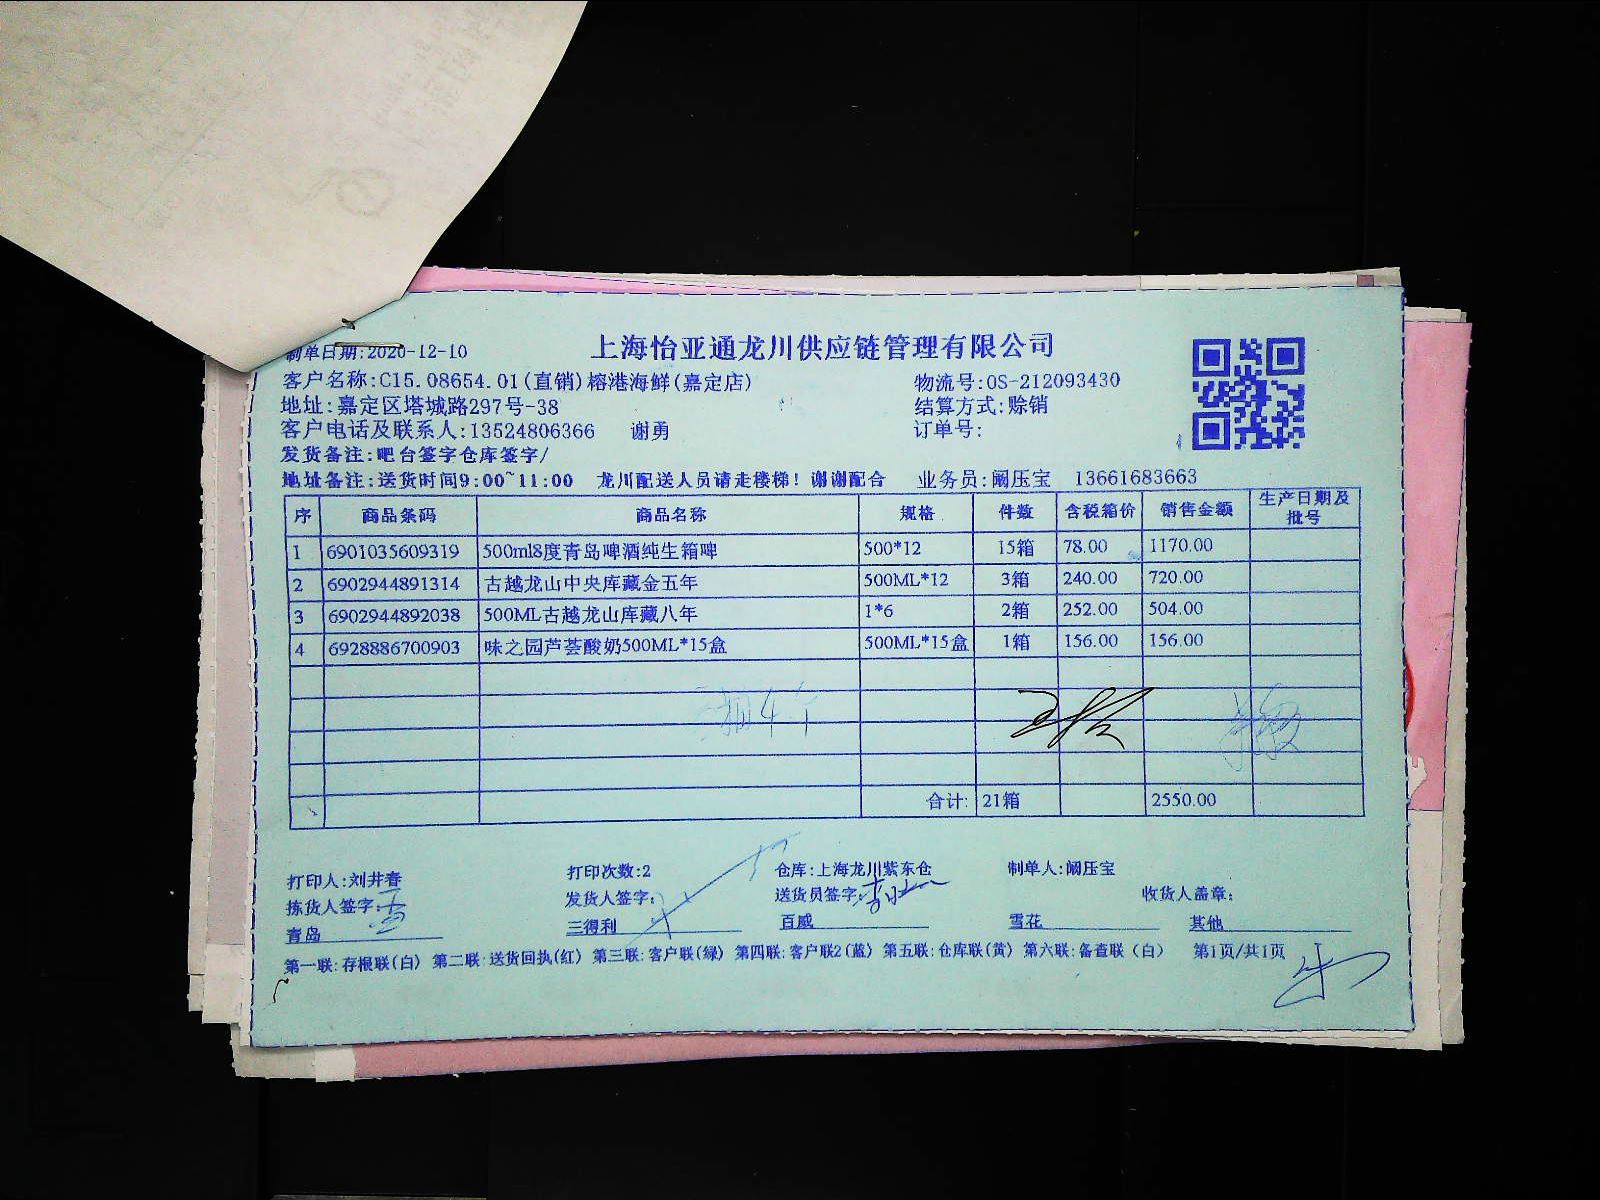 上海怡亚通龙川供应链管理有限公司
制单日期:2020-12-10
客户名称:C15.08654.01(直销)榕港海鲜(嘉定店) 物流号:OS-212093430
地址:嘉定区塔城路297号-38 结算方式:赊销
客户电话及联系人:13524806366 谢勇 订单号:
发货备注:吧台签字仓库签字/
地址备注:送货时间9:00~11:00 龙川配送人员请走楼梯！谢谢配合 业务员:阚压宝 13661683663
序 商品条码 商品名称 规格 件数 含税箱价 销售金额 生产日期及批号
1 6901035609319 500ml8度青岛啤酒纯生箱啤 500*12 15箱 78.00 1170.00
2 6902944891314 古越龙山中央库藏金五年 500ML*12 3箱 240.00 720.00
3 6902944892038 500ML古越龙山库藏八年 1*6 2箱 252.00 504.00
4 6928886700903 味之园芦荟酸奶500ML*15盒 500ML*15盒 1箱 156.00 156.00
合计: 21箱 2550.00
打印人:刘井春 打印次数:2 仓库:上海龙川紫东仓 制单人:阚压宝
拣货人签字: 发货人签字: 送货员签字: 收货人盖章:
青岛 三得利 百威 雪花 其他
第一联:存根联(白) 第二联:送货回执(红) 第三联:客户联(绿) 第四联:客户联2(蓝) 第五联:仓库联(黄) 第六联:备查联(白) 第1页/共1页